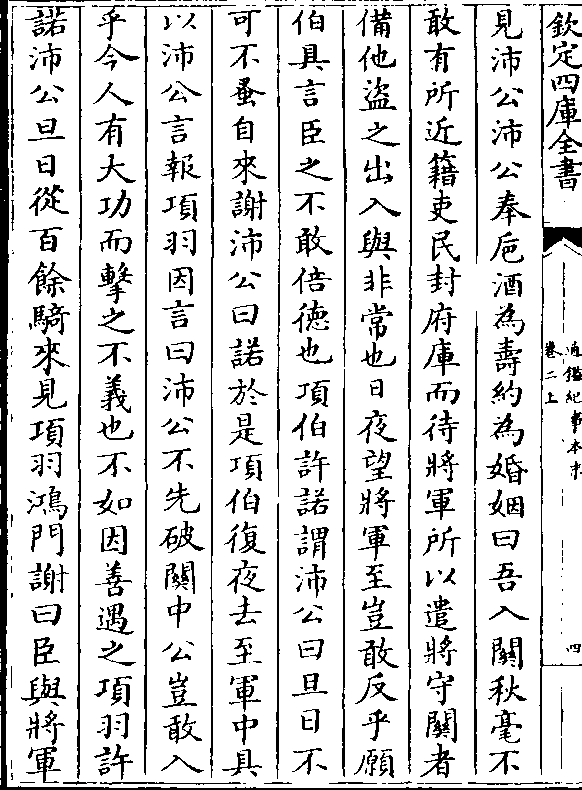 欽定四庫全書
通鑑紀事本末
卷二上
四
見沛公沛公奉巵酒為壽約為婚姻曰吾入關秋毫不
敢有所近籍吏民封府庫而待將軍所以遣將守關者
備他盜之出入與非常也日夜望將軍至豈敢反乎願
伯具言臣之不敢倍德也項伯許諾謂沛公曰旦日不
可不蚤自來謝沛公曰諾於是項伯復夜去至軍中具
以沛公言報項羽因言曰沛公不先破關中公豈敢入
乎今人有大功而擊之不義也不如因善遇之項羽許
諾沛公旦日從百餘騎來見項羽鴻門謝曰臣與將軍